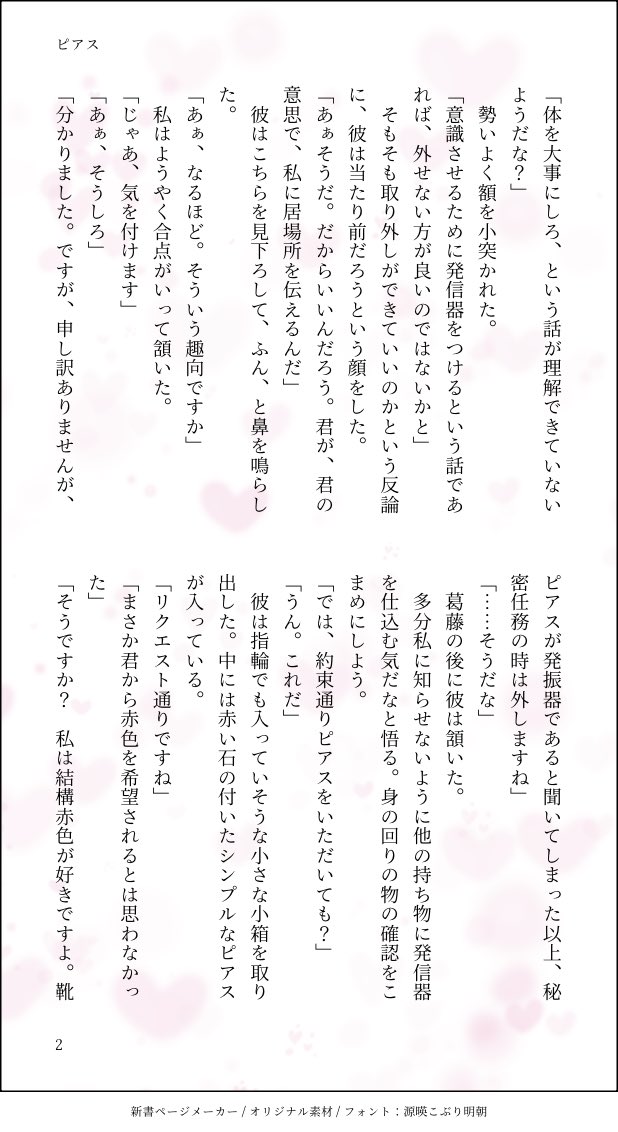 ピアス
「体を大事にしろ、という話が理解できていない
ようだな？」
　勢いよく額を小突かれた。
「意識させるために発信器をつけるという話であ
れば、外せない方が良いのではないかと」
　そもそも取り外しができていいのかという反論
に、彼は当たり前だろうという顔をした。
「あぁそうだ。だからいいんだろう。君が、君の
意思で、私に居場所を伝えるんだ」
　彼はこちらを見下ろして、ふん、と鼻を鳴らし
た。
「あぁ、なるほど。そういう趣向ですか」
　私はようやく合点がいって頷いた。
「じゃあ、気を付けます」
「あぁ、そうしろ」
「分かりました。ですが、申し訳ありませんが、
ピアスが発振器であると聞いてしまった以上、秘
密任務の時は外しますね」
「……そうだな」
　葛藤の後に彼は頷いた。
　多分私に知らせないように他の持ち物に発信器
を仕込む気だなと悟る。身の回りの物の確認をこ
まめにしよう。
「では、約束通りピアスをいただいても？」
「うん。これだ」
　彼は指輪でも入っていそうな小さな小箱を取り
出した。中には赤い石の付いたシンプルなピアス
が入っている。
「リクエスト通りですね」
「まさか君から赤色を希望されるとは思わなかっ
た」
「そうですか？　私は結構赤色が好きですよ。靴
2
新書ページメーカー / オリジナル素材 / フォント：源暎こぶり明朝